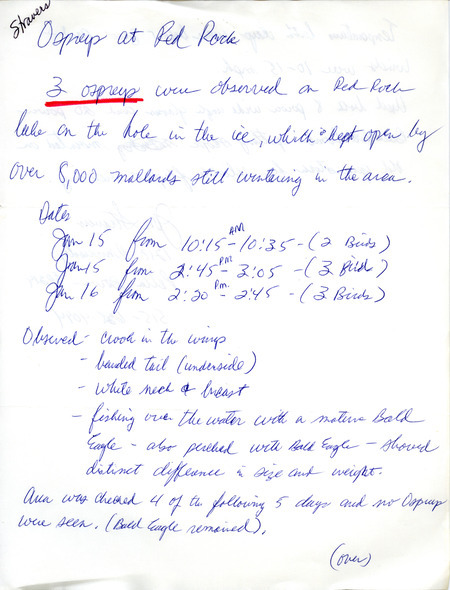 Stravers
Ospreys at Red Rock
3 ospreys were observed on Red Rock
lake on the hole in the ice, which is kept open by
over 8,000 mallards still wintering in the area.
Dates
Jan 15 from 10:15 - AM 10:35 - (2 Birds)
Jan 15 from 2:45 - PM 3:05 - (3 Birds)
Jan 16 from 2:20 - P.M. 2:45 - (3 Birds)
Observed - crook in the wings
- banded tail (underside)
- white neck & breast
- fishing over the water with a mature Bald
Eagle - also perched with Bald Eagle - showed
distinct difference in size and weight.
Area was checked 4 of the following 5 days and no Ospreys
were seen. (Bald Eagle remained).
(over)